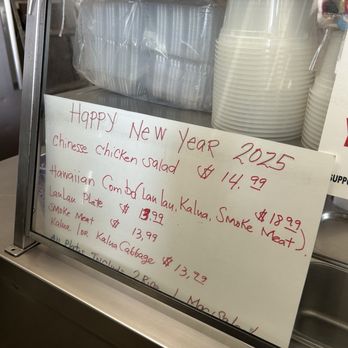 Happy New Year 2025
chinesse chicken salad $14.99
Hawaiian Combo (Lau Lau, Kalua, Smoke Meat) $18.99
Lau Lau Plate $13.99
Smoke Meat $13,99
Kalua / or Kalua Cabbage $13,99
All Plates Include 2 Rice 1
SUPPO